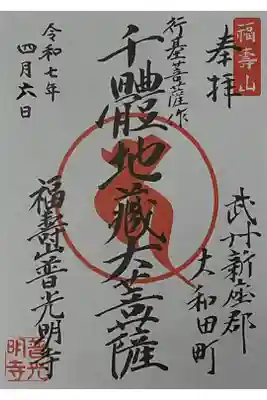 福壽山
奉拝
武州新座郡
大和田町
行基菩薩作
千體地藏大菩薩
福壽山普光明寺
普光
明寺
令和七年
四月六日